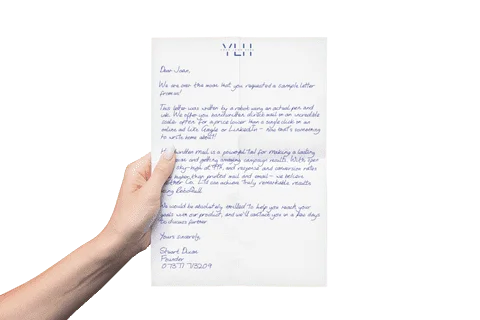 YLH
Dear Joan,
We are over the moon that you requested a sample letter
from us!
This letter was written by a robot using an actual pen and
ink. We offer you handwritten direct mail on an incredible
scale often for a price lower than a single click on an
online ad like Google or LinkedIn - now that's something
to write home about!
Handwritten mail is a powerful tool for making a lasting
and getting amazing campaign results. With open
sky-high at 99%, and response and conversion rates
higher than printed mail and email - we believe
Co. Ltd can achieve truly remarkable results
using RoboQuill
We would be absolutely thrilled to help you reach your
goals with our product, and we'll contact you in a few days
to discuss further.
Yours sincerely,
Stuart
Founder